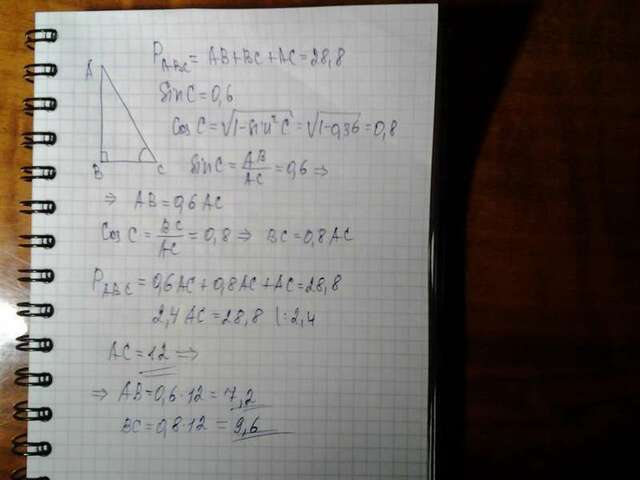 A
B
C
P_ABC = AB + BC + AC = 28,8
Sin C = 0,6
Cos C = √(1 - sin² C) = √(1 - 0,36) = 0,8
Sin C = AB/AC = 0,6 ⇒
⇒ AB = 0,6 AC
Cos C = BC/AC = 0,8 ⇒ BC = 0,8 AC
P_ABC = 0,6AC + 0,8AC + AC = 28,8
2,4 AC = 28,8 | : 2,4
AC = 12 ⇒
⇒ AB = 0,6 · 12 = 7,2
BC = 0,8 · 12 = 9,6